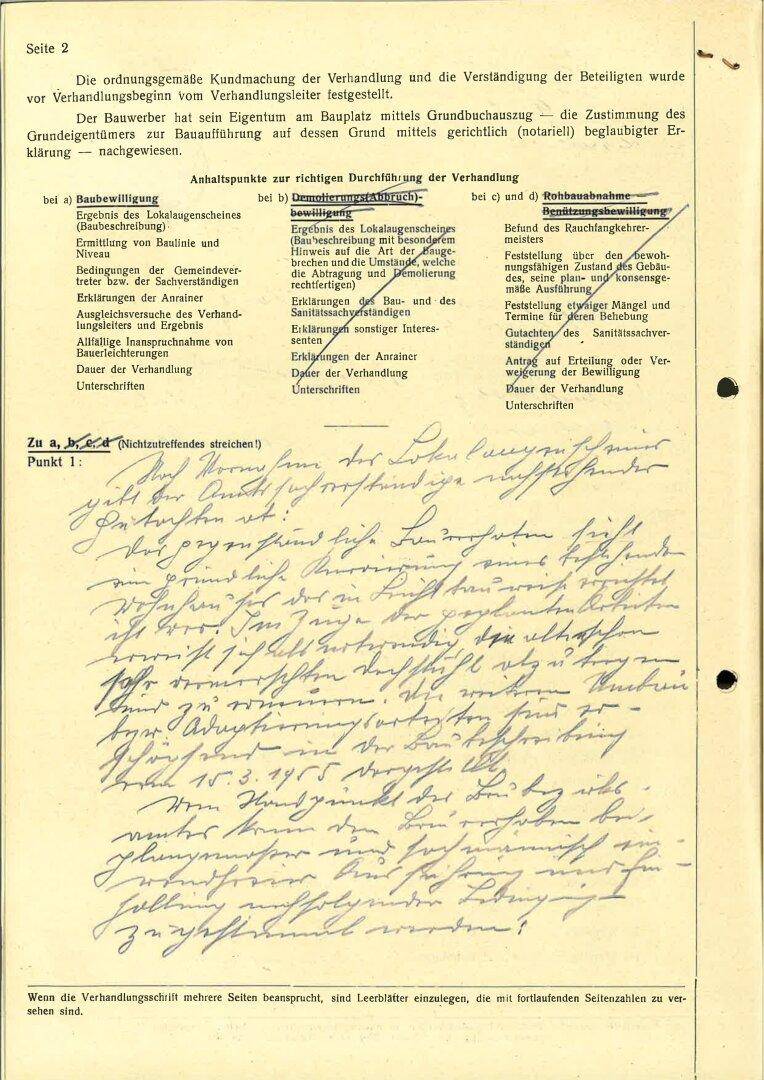 Seite 2
Die ordnungsgemäße Kundmachung der Verhandlung und die Verständigung der Beteiligten wurde
vor Verhandlungsbeginn vom Verhandlungsleiter festgestellt.
Der Bauwerber hat sein Eigentum am Bauplatz mittels Grundbuchauszug — die Zustimmung des
Grundeigentümers zur Bauaufführung auf dessen Grund mittels gerichtlich (notariell) beglaubigter Er-
klärung — nachgewiesen.
Anhaltspunkte zur richtigen Durchführung der Verhandlung
bei a) Baubewilligung
Ergebnis des Lokalaugenscheines
(Baubeschreibung)
Ermittlung von Baulinie und
Niveau
Bedingungen der Gemeindever-
treter bzw. der Sachverständigen
Erklärungen der Anrainer
Ausgleichsversuche des Verhand-
lungsleiters und Ergebnis
Allfällige Inanspruchnahme von
Bauerleichterungen
Dauer der Verhandlung
Unterschriften
bei b) Demolierungs(Abbruch)-
bewilligung
Ergebnis des Lokalaugenscheines
(Baubeschreibung mit besonderem
Hinweis auf die Art der Bauge-
brechen und die Umstände, welche
die Abtragung und Demolierung
rechtfertigen)
Erklärungen des Bau- und des
Sanitätssachverständigen
Erklärungen sonstiger Interes-
senten
Erklärungen der Anrainer
Dauer der Verhandlung
Unterschriften
bei c) und d) Rohbauabnahme
Benützungsbewilligung
Befund des Rauchfangkehrer-
meisters
Feststellung über den bewoh-
nungsfähigen Zustand des Gebäu-
des, seine plan- und konsensge-
mäße Ausführung
Feststellung etwaiger Mängel und
Termine für deren Behebung
Gutachten des Sanitätssachver-
ständigen
Antrag auf Erteilung oder Ver-
weigerung der Bewilligung
Dauer der Verhandlung
Unterschriften
Zu a, b, c, d (Nichtzutreffendes streichen!)
Punkt 1:
Nach Vornahme des Lokalaugenscheines
gibt der Amtssachverständige nachstehendes
Gutachten ab:
Das gegenständliche Bauvorhaben sieht
eine gründliche eines bestehenden
Wohnhauses das in Leichtbauweise errichtet
ist vor. Im Zuge der geplanten Arbeiten
erweist sich als notwendig den alten schon
sehr vermorschten Dachstuhl abzutragen
und zu erneuern. Die weiteren Umbau
bzw. Adaptierungsarbeiten sind er-
schöpfend in der Baubeschreibung
vom 15.3.1955 dargestellt.
Vom Standpunkt des Baubezirks-
amtes kann dem Bauvorhaben bei
plangemäßer und fachmännisch ein-
wandfreier Ausführung und Ein-
haltung nachfolgender
zugestimmt werden:
Wenn die Verhandlungsschrift mehrere Seiten beansprucht, sind Leerblätter einzulegen, die mit fortlaufenden Seitenzahlen zu ver-
sehen sind.